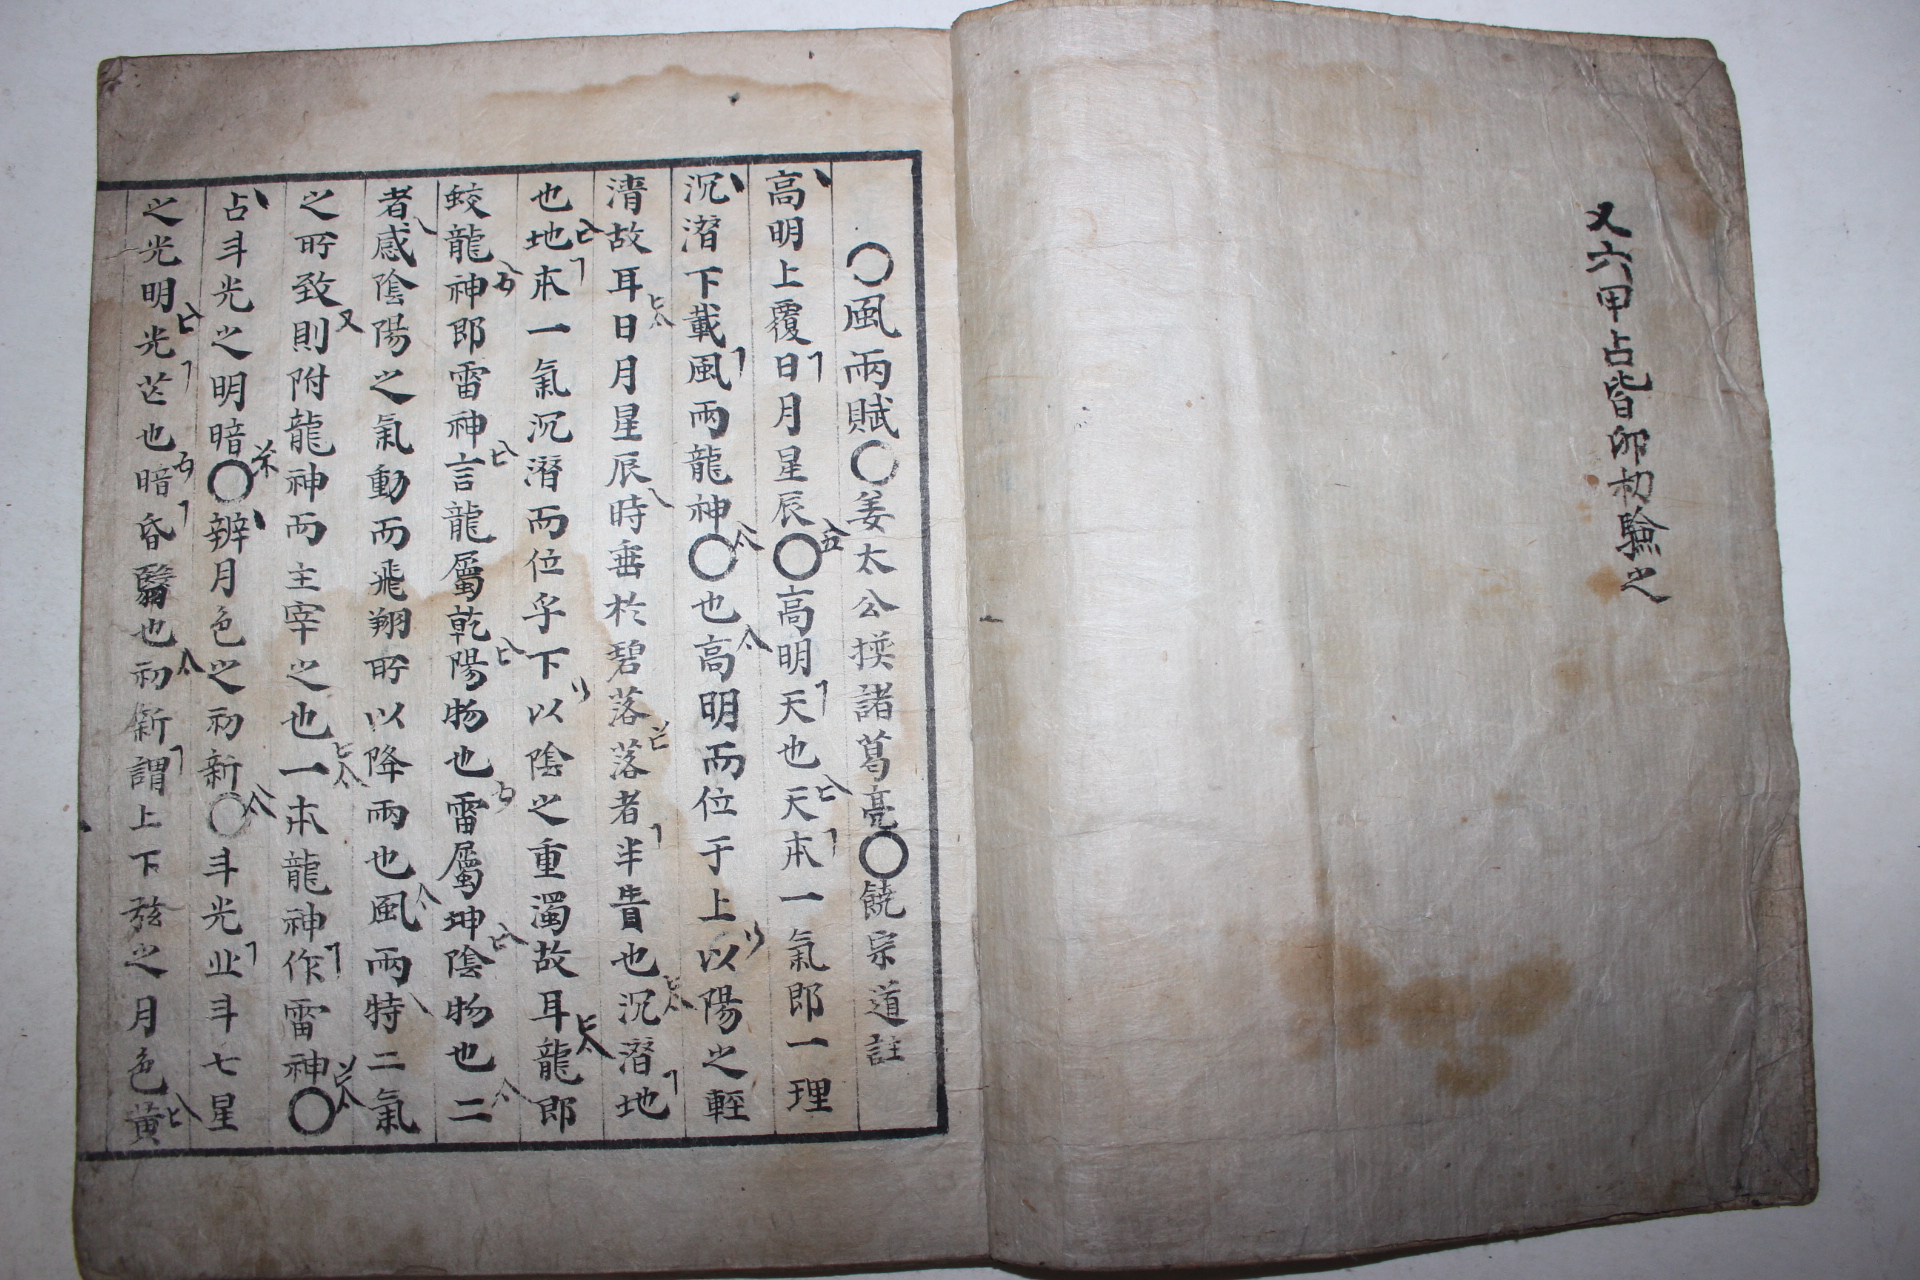 又六甲占皆卯初驗之
〇風雨賦〇姜太公撰諸葛亮〇饒宗道註
高明上覆日月星辰〇高明天也天本一氣郎一理
沉潛下載風雨龍神〇也高明而位于上以陽之輕
清故耳日月星辰時垂於碧落落者半貴也沉潛地
也地本一氣沉潛而位乎下以陰之重濁故耳龍郎
蛟龍神郎雷神言龍屬乾陽物也雷屬坤陰物也二
者感陰陽之氣動而飛翔所以降雨也風雨特二氣
之所致則附龍神而主宰之也一本龍神作雷神〇
占斗光之明暗〇辨月色之初新〇斗光北斗七星
之光明光芒也暗昏翳也初新謂上下弦之月色黃